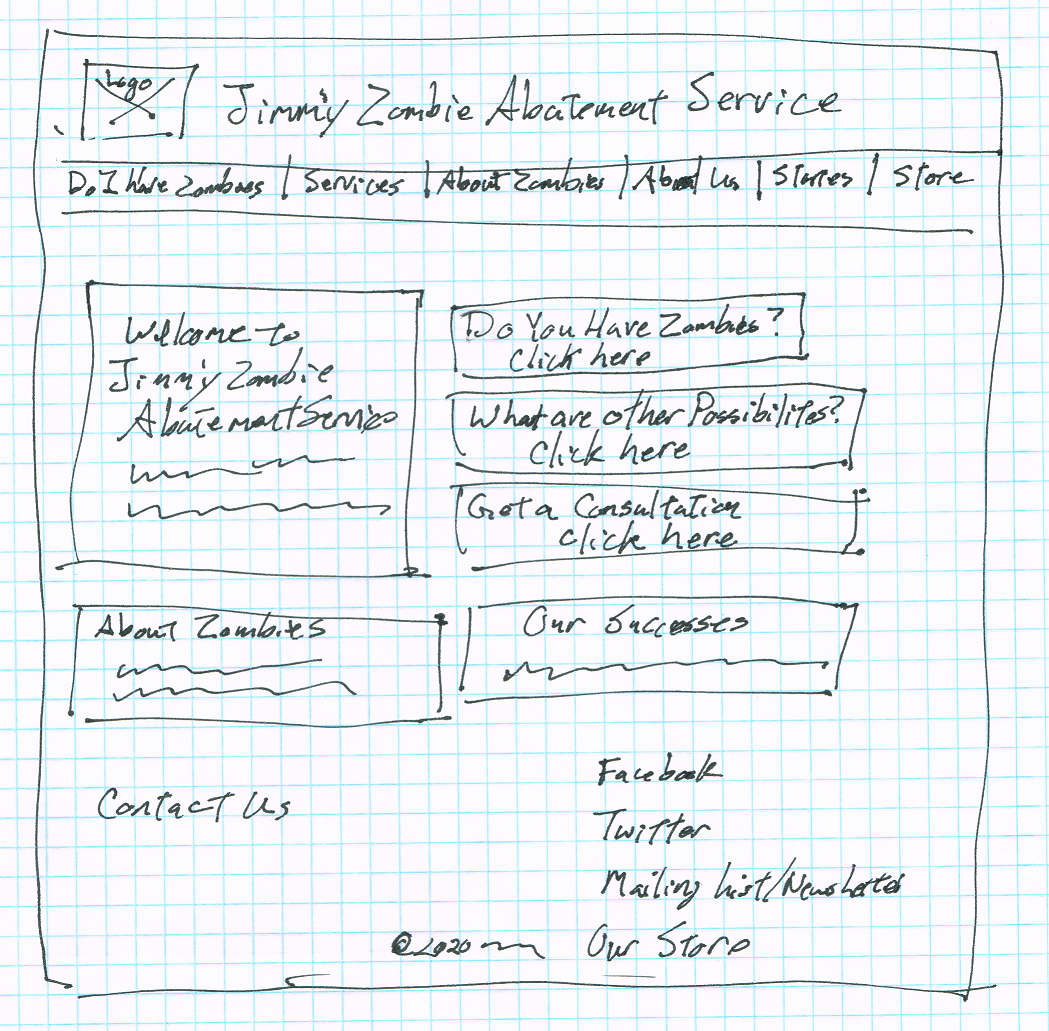 Logo
Jimmy Zombie Abatement Service
Do I Have Zombies | Services | About Zombies | About Us | Stories | Store
Welcome to
Jimmy Zombie
Abatement Service
Do You Have Zombies?
Click here
What are other Possibilites?
Click here
Get a Consultation
click here
About Zombies
Our Successes
Contact Us
Facebook
Twitter
Mailing List/Newsletter
©2020
Our Store